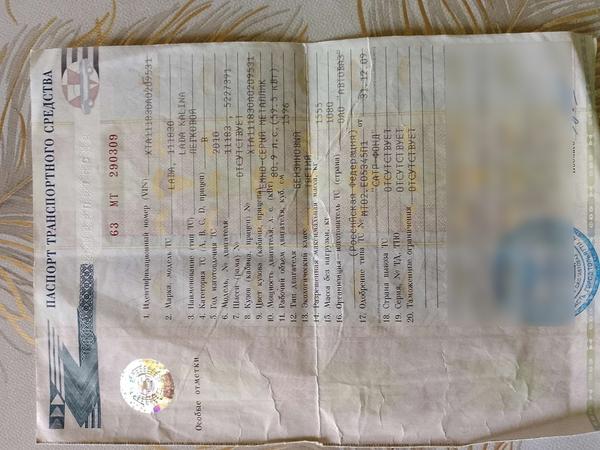 ПАСПОРТ ТРАНСПОРТНОГО СРЕДСТВА
63 МТ 290309
1. Идентификационный номер (VIN) XTA111830A0209531
2. Марка, модель ТС LADA, 111830
LADA KALINA
3. Наименование (тип ТС) ЛЕГКОВОЙ
4. Категория ТС (A, B, C, D, прицеп) B
5. Год изготовления ТС 2010
6. Модель, № двигателя 11183, 5227391
7. Шасси (рама) № ОТСУТСТВУЕТ
8. Кузов (кабина, прицеп) № XTA111830A0209531
9. Цвет кузова (кабины, прицепа) ТЕМНО-СЕРЫЙ МЕТАЛЛИК
10. Мощность двигателя, л. с. (кВт) 80.9 л.с. (59.5 кВт)
11. Рабочий объем двигателя, куб. см 1596
12. Тип двигателя БЕНЗИНОВЫЙ
13. Экологический класс ТРЕТИЙ
14. Разрешенная максимальная масса, кг 1555
15. Масса без нагрузки, кг 1080
16. Организация - изготовитель ТС (страна) ОАО "АВТОВАЗ"
(Российская Федерация)
17. Одобрение типа ТС № от 31.12.09
"САТР-ФОНД"
18. Страна вывоза ТС ОТСУТСТВУЕТ
19. Серия, № ТД, ТПО ОТСУТСТВУЕТ
20. Таможенные ограничения ОТСУТСТВУЕТ
Особые отметки